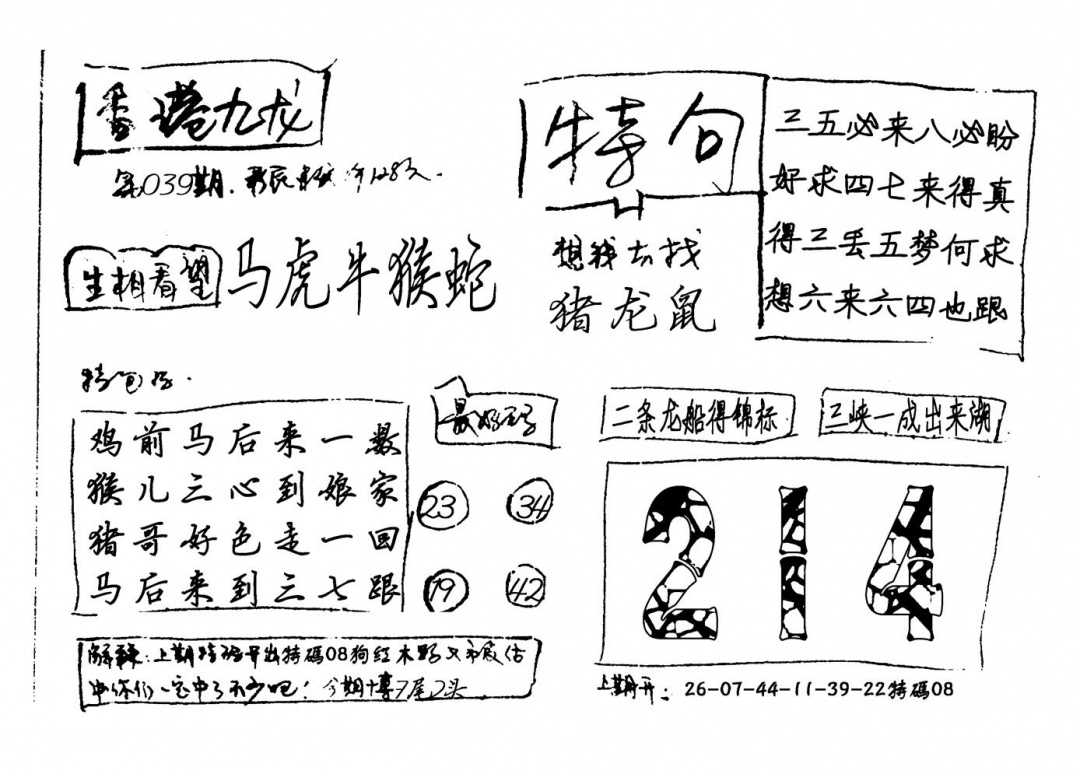 香港九龙
第039期.
生相看望
马虎牛猴蛇
特句
想我去找
猪龙鼠
三五必来八必盼
好求四七来得真
得三丢五梦何求
想六来六四也跟
鸡前马后来一数
猴儿三心到娘家
猪哥好色走一回
马后来到三七跟
23 34
19 42
二条龙船得锦标
三峡一成出来湖
214
解释:上期特码开出特碼08狗红木野
中你们一定中了不少吧!今期博7尾2头
上期开: 26-07-44-11-39-22特碼08